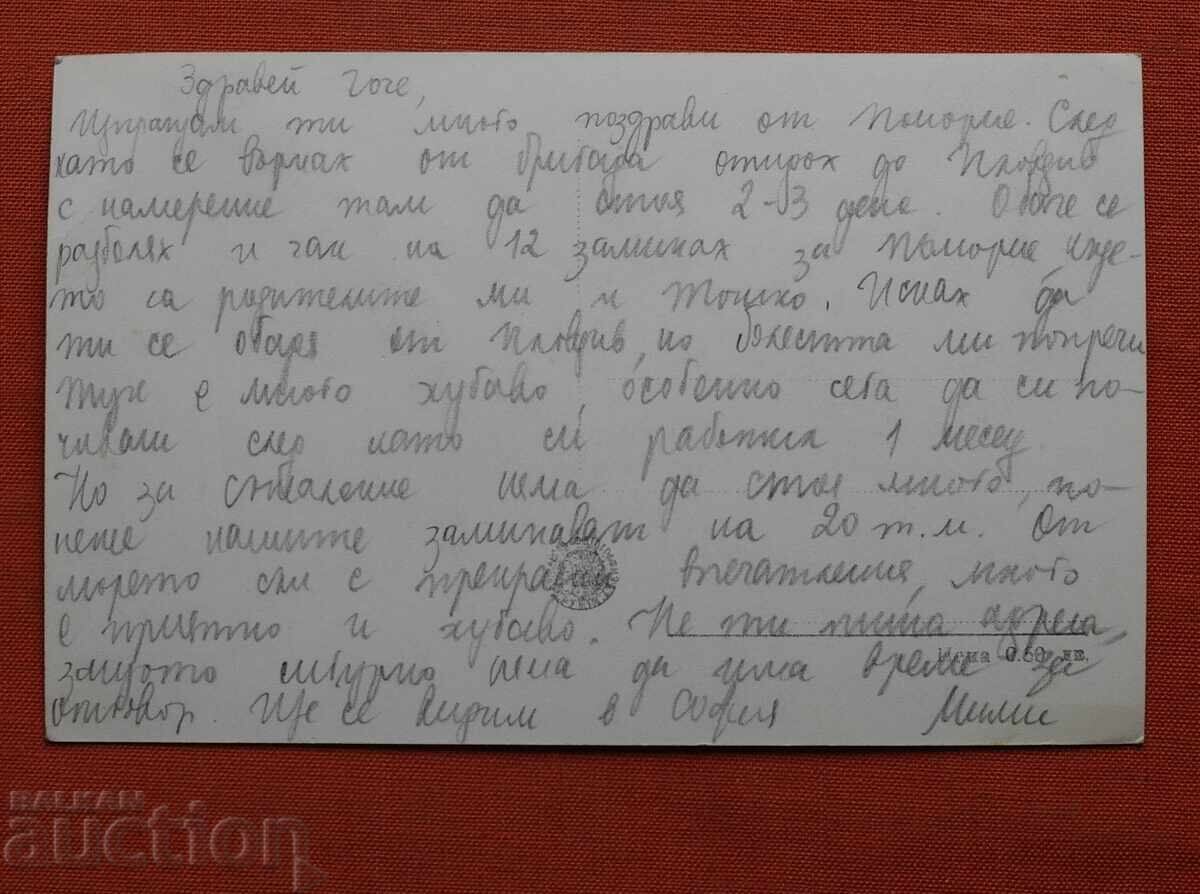 Здравей Гоче,
Изпращам ти много поздрави от Поморие. След
като се върнах от бригада отидох до Пловдив
с намерение там да стоя 2-3 дена. Обаче се
разболях и чак на 12 заминах за Поморие къде-
то са родителите ми и Тошко. Исках да
ти се обадя от Пловдив, но болестта ми попречи
Тук е много хубаво, особенно сега да си по-
чивам след като си работил 1 месец.
Но за съжаление нема да стоя много, по-
неже нашите заминават на 20 т.м. От
морето съм с прекрасни впечатления, много
е приятно и хубаво. Не ти пиша адреса,
защото сигурно нема да има време за
отговор. Ще се видим в София Мими
Цена 0.60 лв.
BALKAN
auction